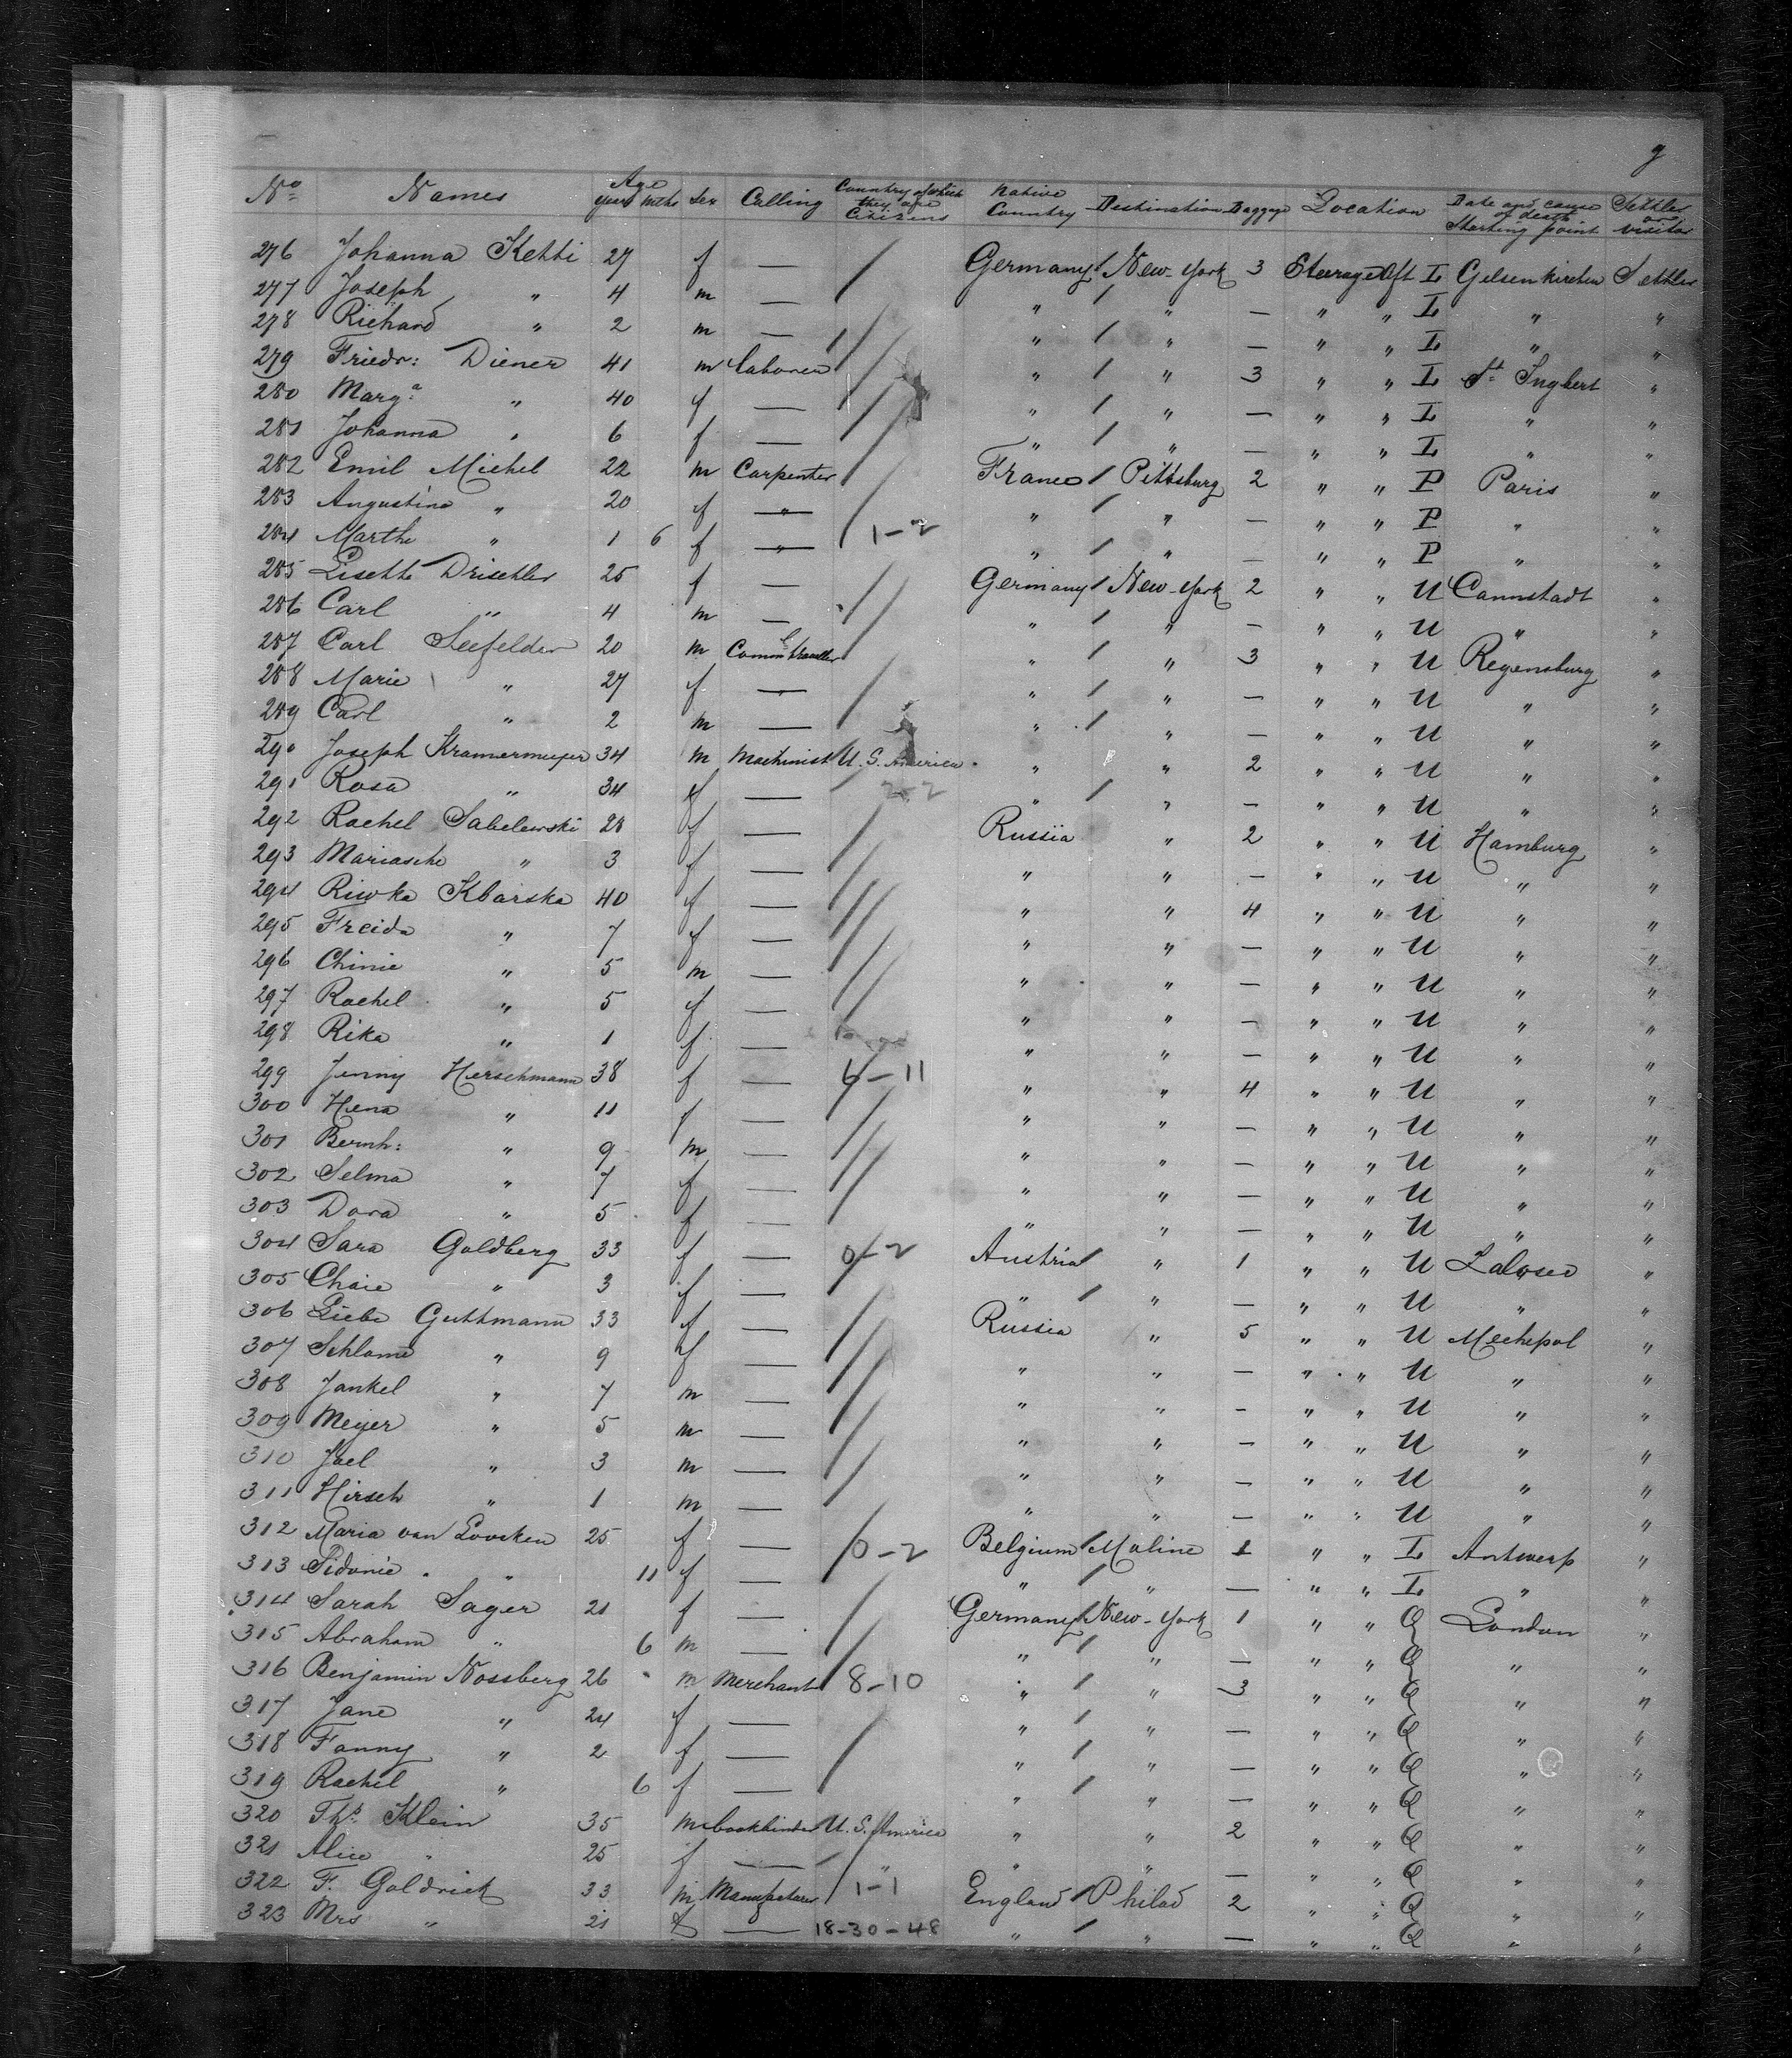 9
No Names Age years mths Sex Calling Country of which they are Citizens Native Country Destination Baggage Location Date and cause of death Starting point Settler or visitor
276 Johanna Ketti 27 f — Germany New-York 3 Steerage Aft L Gelsenkirchen Settler
277 Joseph " 4 m — " " — " " L " "
278 Richard " 2 m — " " — " " L " "
279 Friedr: Diener 41 m laborer " " 3 " " L St Ingbert "
280 Marga " 40 f — " " — " " L " "
281 Johanna " 6 f — " " — " " L " "
282 Emil Michel 22 m Carpenter France Pittsburg 2 " " P Paris "
283 Augustine " 20 f — " " — " " P " "
284 Marthe " 1 6 f — 1-2 " " — " " P " "
285 Lisette Drischler 25 f — Germany New-York 2 " " U Cannstadt "
286 Carl " 4 m — " " — " " U " "
287 Carl Seefelder 20 m Comm traveller " " 3 " " U Regensburg "
288 Marie " 27 f — " " — " " U " "
289 Carl " 2 m — " " — " " U " "
290 Joseph Kramermeyer 34 m Machinist U.S. America " " 2 " " U " "
291 Rosa " 34 f — 2-2 " " — " " U " "
292 Rachel Sabelewski 28 f — Russia " 2 " " U Hamburg "
293 Mariasche " 3 f — " " — " " U " "
294 Riwka Kbarska 40 f — " " 4 " " U " "
295 Freida " 7 f — " " — " " U " "
296 Chinie " 5 m — " " — " " U " "
297 Rachel " 5 f — " " — " " U " "
298 Rika " 1 f — " " — " " U " "
299 Jenny Herschmann 38 f — 6-11 " " 4 " " U " "
300 Hena " 11 f — " " — " " U " "
301 Bernh: " 9 m — " " — " " U " "
302 Selma " 7 f — " " — " " U " "
303 Dora " 5 f — " " — " " U " "
304 Sara Goldberg 33 f — 0-2 Austria " 1 " " U "
305 Chaie " 3 f — " " — " " U " "
306 Liebe Guttmann 33 f — Russia " 5 " " U Mechepol "
307 Schlome " 9 f — " " — " " U " "
308 Jankel " 7 m — " " — " " U " "
309 Meyer " 5 m — " " — " " U " "
310 Joel " 3 m — " " — " " U " "
311 Hirsch " 1 m — " " — " " U " "
312 Maria van 25 f — 0-2 Belgium Moline 1 " " L Antwerp "
313 Sidonie " 11 f — " " — " " L " "
314 Sarah Sager 21 f — Germany New-York 1 " " Q London "
315 Abraham " 6 m — " " — " " Q " "
316 Benjamin Nossberg 26 m Merchant 8-10 " " 3 " " Q " "
317 Jane " 24 f — " " — " " Q " "
318 Fanny " 2 f — " " — " " Q " "
319 Rachel " 6 f — " " — " " Q " "
320 Ths Klein 35 m bookbinder U.S. America " " 2 " " Q " "
321 Alice " 25 f — " " " — " " Q " "
322 F. Goldrick 33 m Manufacturer 1-1 England Philad 2 " " Q " "
323 Mrs " 21 f — 18-30-48 " " — " " Q " "